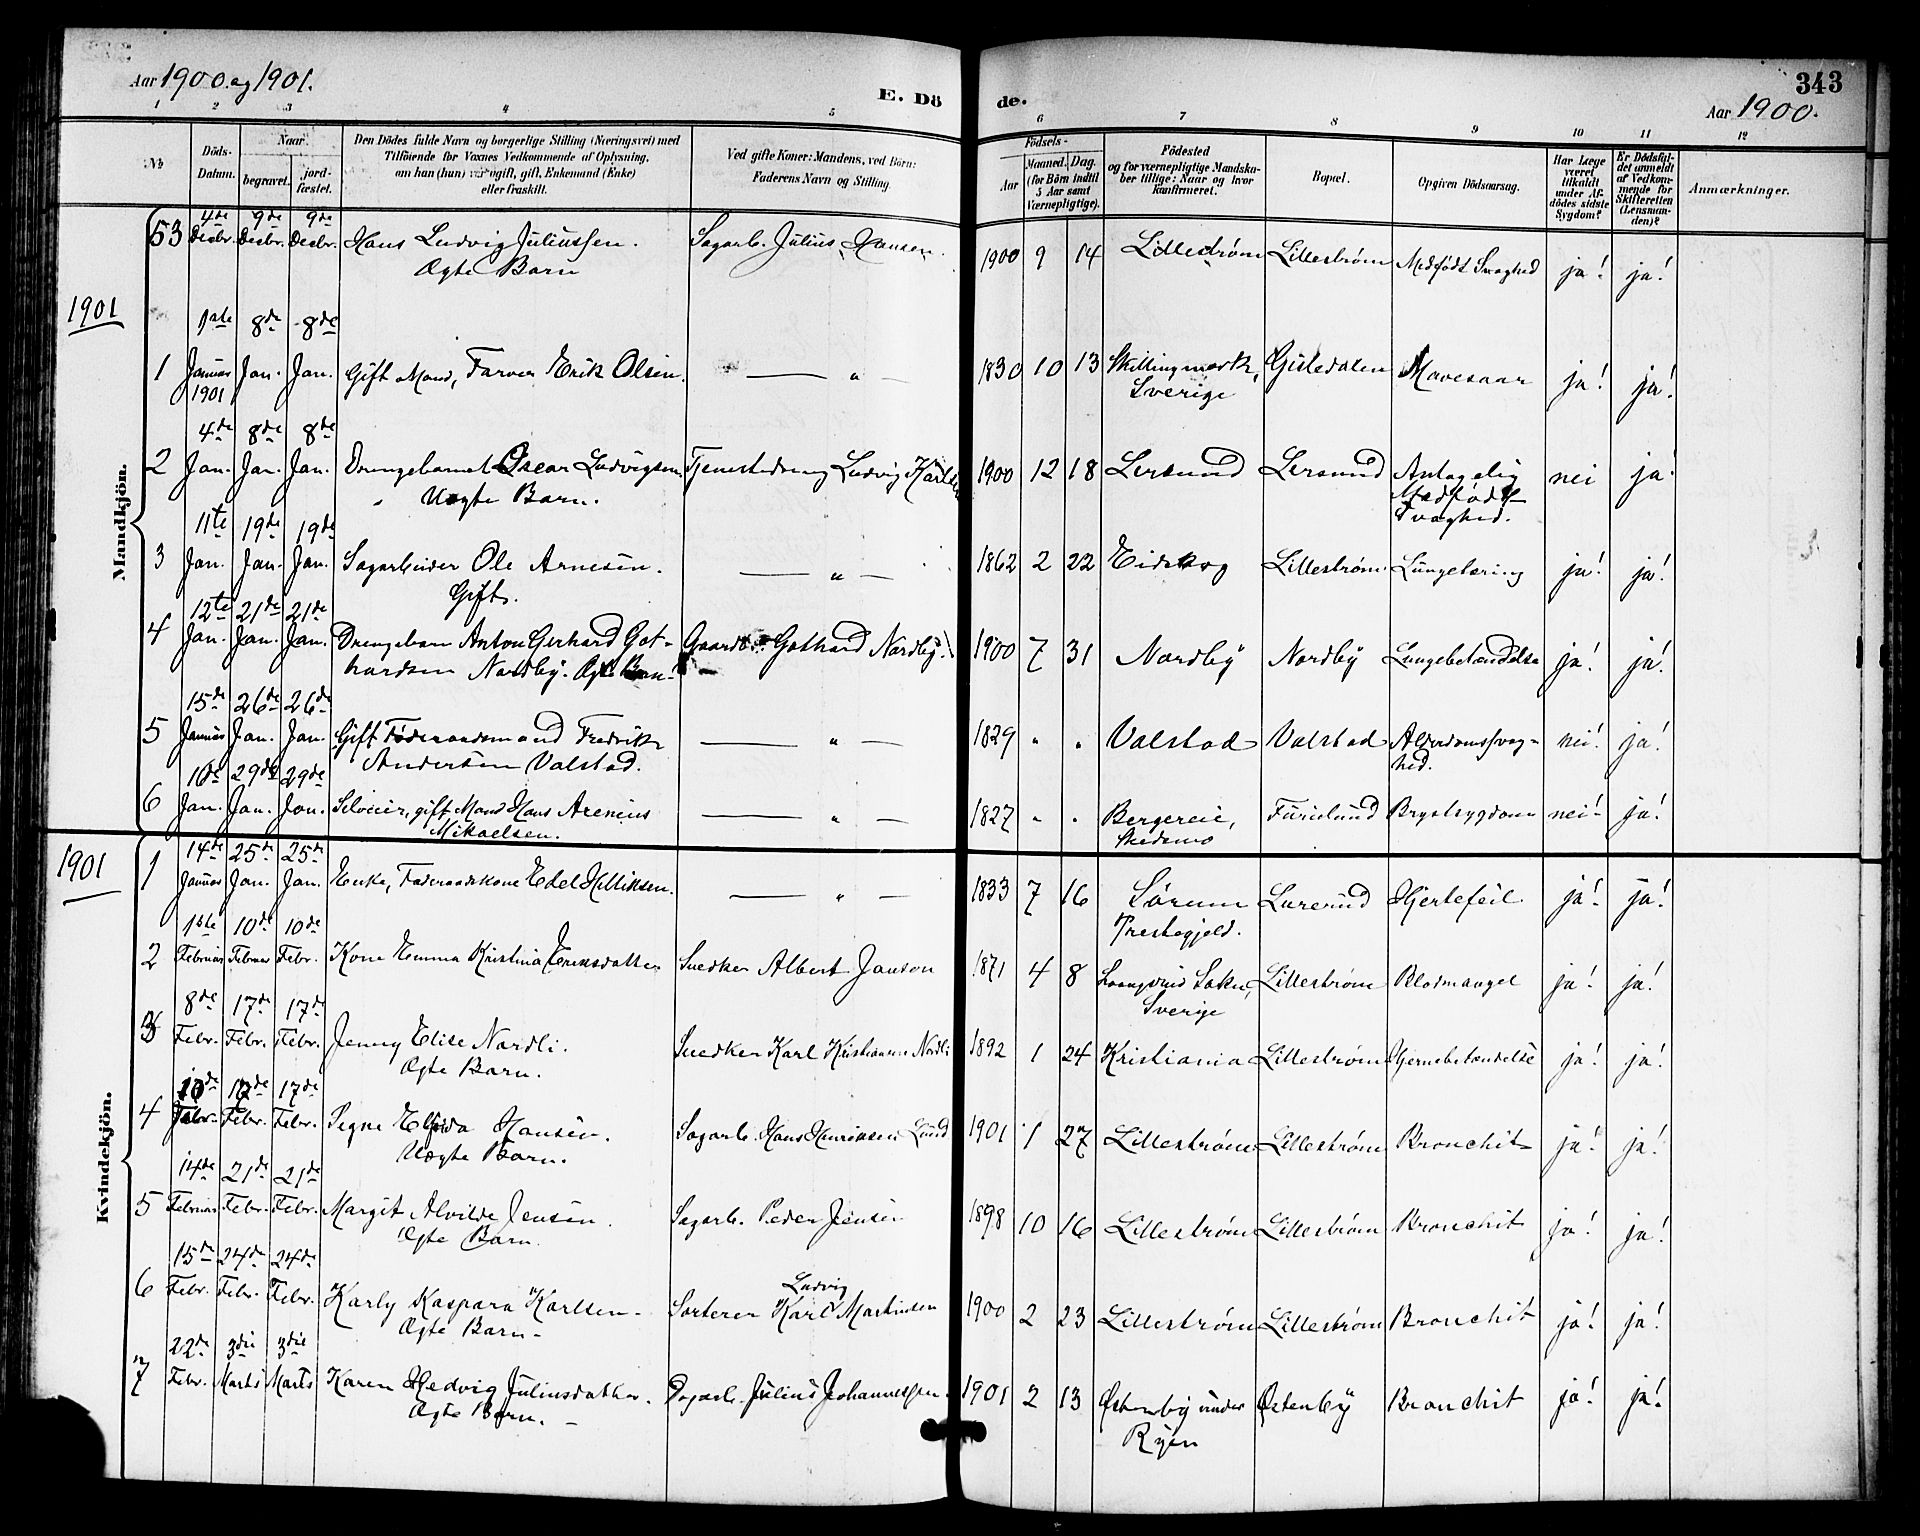 Aar 1900 og 1901.
E. Dö
de.
343
Aar 1900.
1 2 3 4 5 6 7 8 9 10 11 12
No
Döds-
Datum.
Naar
begravet.
jord-
fæstet.
Den Dödes fulde Navn og borgerlige Stilling (Næringsvei) med
Tilföiende for Voxnes Vedkommende af Oplysning,
om han (hun) var ugift, gift, Enkemand (Enke)
eller fraskilt.
Ved gifte Koner: Mandens, ved Börn:
Faderens Navn og Stilling.
Födsels-
Aar
Maaned. Dag.
(for Börn indtil
5 Aar samt
Værnepligtige).
Födested
og for værnepligtige Mandska-
ber tillige: Naar og hvor
konfirmeret.
Bopæl.
Opgiven Dödsaarsag.
Har Læge
været
tilkaldt
under Af-
dödes sidste
Sygdom?
Er Dödsfal-
det anmeldt
af Vedkom-
mende for
Skifteretten
(Lensman-
den)?
Anmærkninger.
Mandkjön.
53 4de Decbr. 9de Decbr. 9de Decbr. Hans Ludvig Juliussen. Sagarb. Julius Hansen. 1900 9 14 Lillestrøm Lillestrøm Medfødt Svaghed ja! ja!
Ægte Barn
1901
1 1ste Januar 1901 8de Jan. 8de Jan. Gift Mand, Farver Erik Olsen. — " — 1830 10 13 Skillingmark, Gisledalen Mavesaar ja! ja!
Sverige
2 4de Jan. 8de Jan. 8de Jan. Drengebarnet Oscar Ludvigsen Tjenestedreng Ludvig Karlsen 1900 12 18 Lersund Lersund Antagelig nei ja!
Uægte Barn. Medfødt
Svaghed.
3 11te Jan. 19de Jan. 19de Jan. Sagarbeider Ole Arnesen. — " — 1862 2 22 Eidskog Lillestrøm Lungetæring ja! ja!
Gift.
4 12te Jan. 21de Jan. 21de Jan. Drengebarn Anton Gerhard Got- Gaardb. Gothard Nordby. 1900 7 31 Nordby Nordby Lungebetændelse ja! ja!
hardsen Nordby. Ægte Barn
5 15de Januar 26de Jan. 26de Jan. Gift Føderaadsmand Fredrik — " — 1829 " " Valstad Valstad Alderdomssvag- nei! ja!
Andersen Valstad. hed.
6 16de Jan. 29de Jan. 29de Jan. gift Mand Hans Arenius — " — 1827 " " Bergereie, Furulund Brystsygdom nei! ja!
Mikaelsen. Skedsmo
Kvindekjön.
1901
1 14de Januar 25de Jan. 25de Jan. Enke, Føderaadskone Edel — " — 1833 7 16 Sørum Hjertefeil. ja! ja!
Prestegjeld.
2 1ste Februar 10de Februar 10de Febr. Kone Emma Kristina Eriksdatter Snedker Albert Janson 1871 4 8 Lillestrøm Blodmangel ja! ja!
Sverige
3 8de Febr. 17de Febr. 17de Febr. Jenny Elise Nordli. Snedker Karl Kristiansen Nordli 1892 1 24 Kristiania Lillestrøm Hjernebetændelse ja! ja!
Ægte Barn.
4 10de Febr. 17de Febr. 17de Febr. Signe Elfrida Hansen. Sagarb. Hans Henriksen Lund 1901 1 27 Lillestrøm Lillestrøm Bronchit ja! ja!
Uægte Barn.
5 14de Februar 21de Febr. 21de Febr. Margit Alvilde Jensen. Sagarb. Peder Jensen 1898 10 16 Lillestrøm Lillestrøm Bronchit ja! ja!
Ægte Barn.
6 15de Febr. 24de Febr. 24de Febr. Karly Kaspara Karlsen Sorterer Karl Ludvig Martinsen 1900 2 23 Lillestrøm Lillestrøm Bronchit ja! ja!
Ægte Barn
7 22de Febr. 3die Marts 3die Marts Karen Hedvig Juliusdatter. Dagarb. Julius Johannessen 1901 2 13 Østenby under Østenby Bronchit ja! ja!
Ægte Barn. Ryen